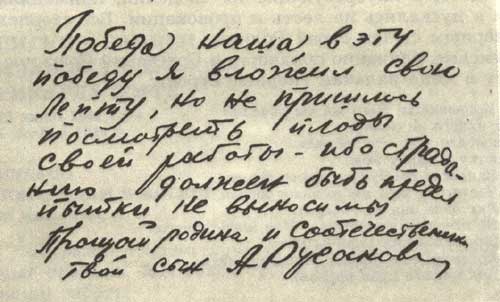 Победа наша, в эту
победу я вложил свою
лепту, но не пришлось
посмотреть плоды
своей работы - ибо страда-
нию должен быть предел
пытки не выносимы
Прощай родина и соотечественники
твой сын А